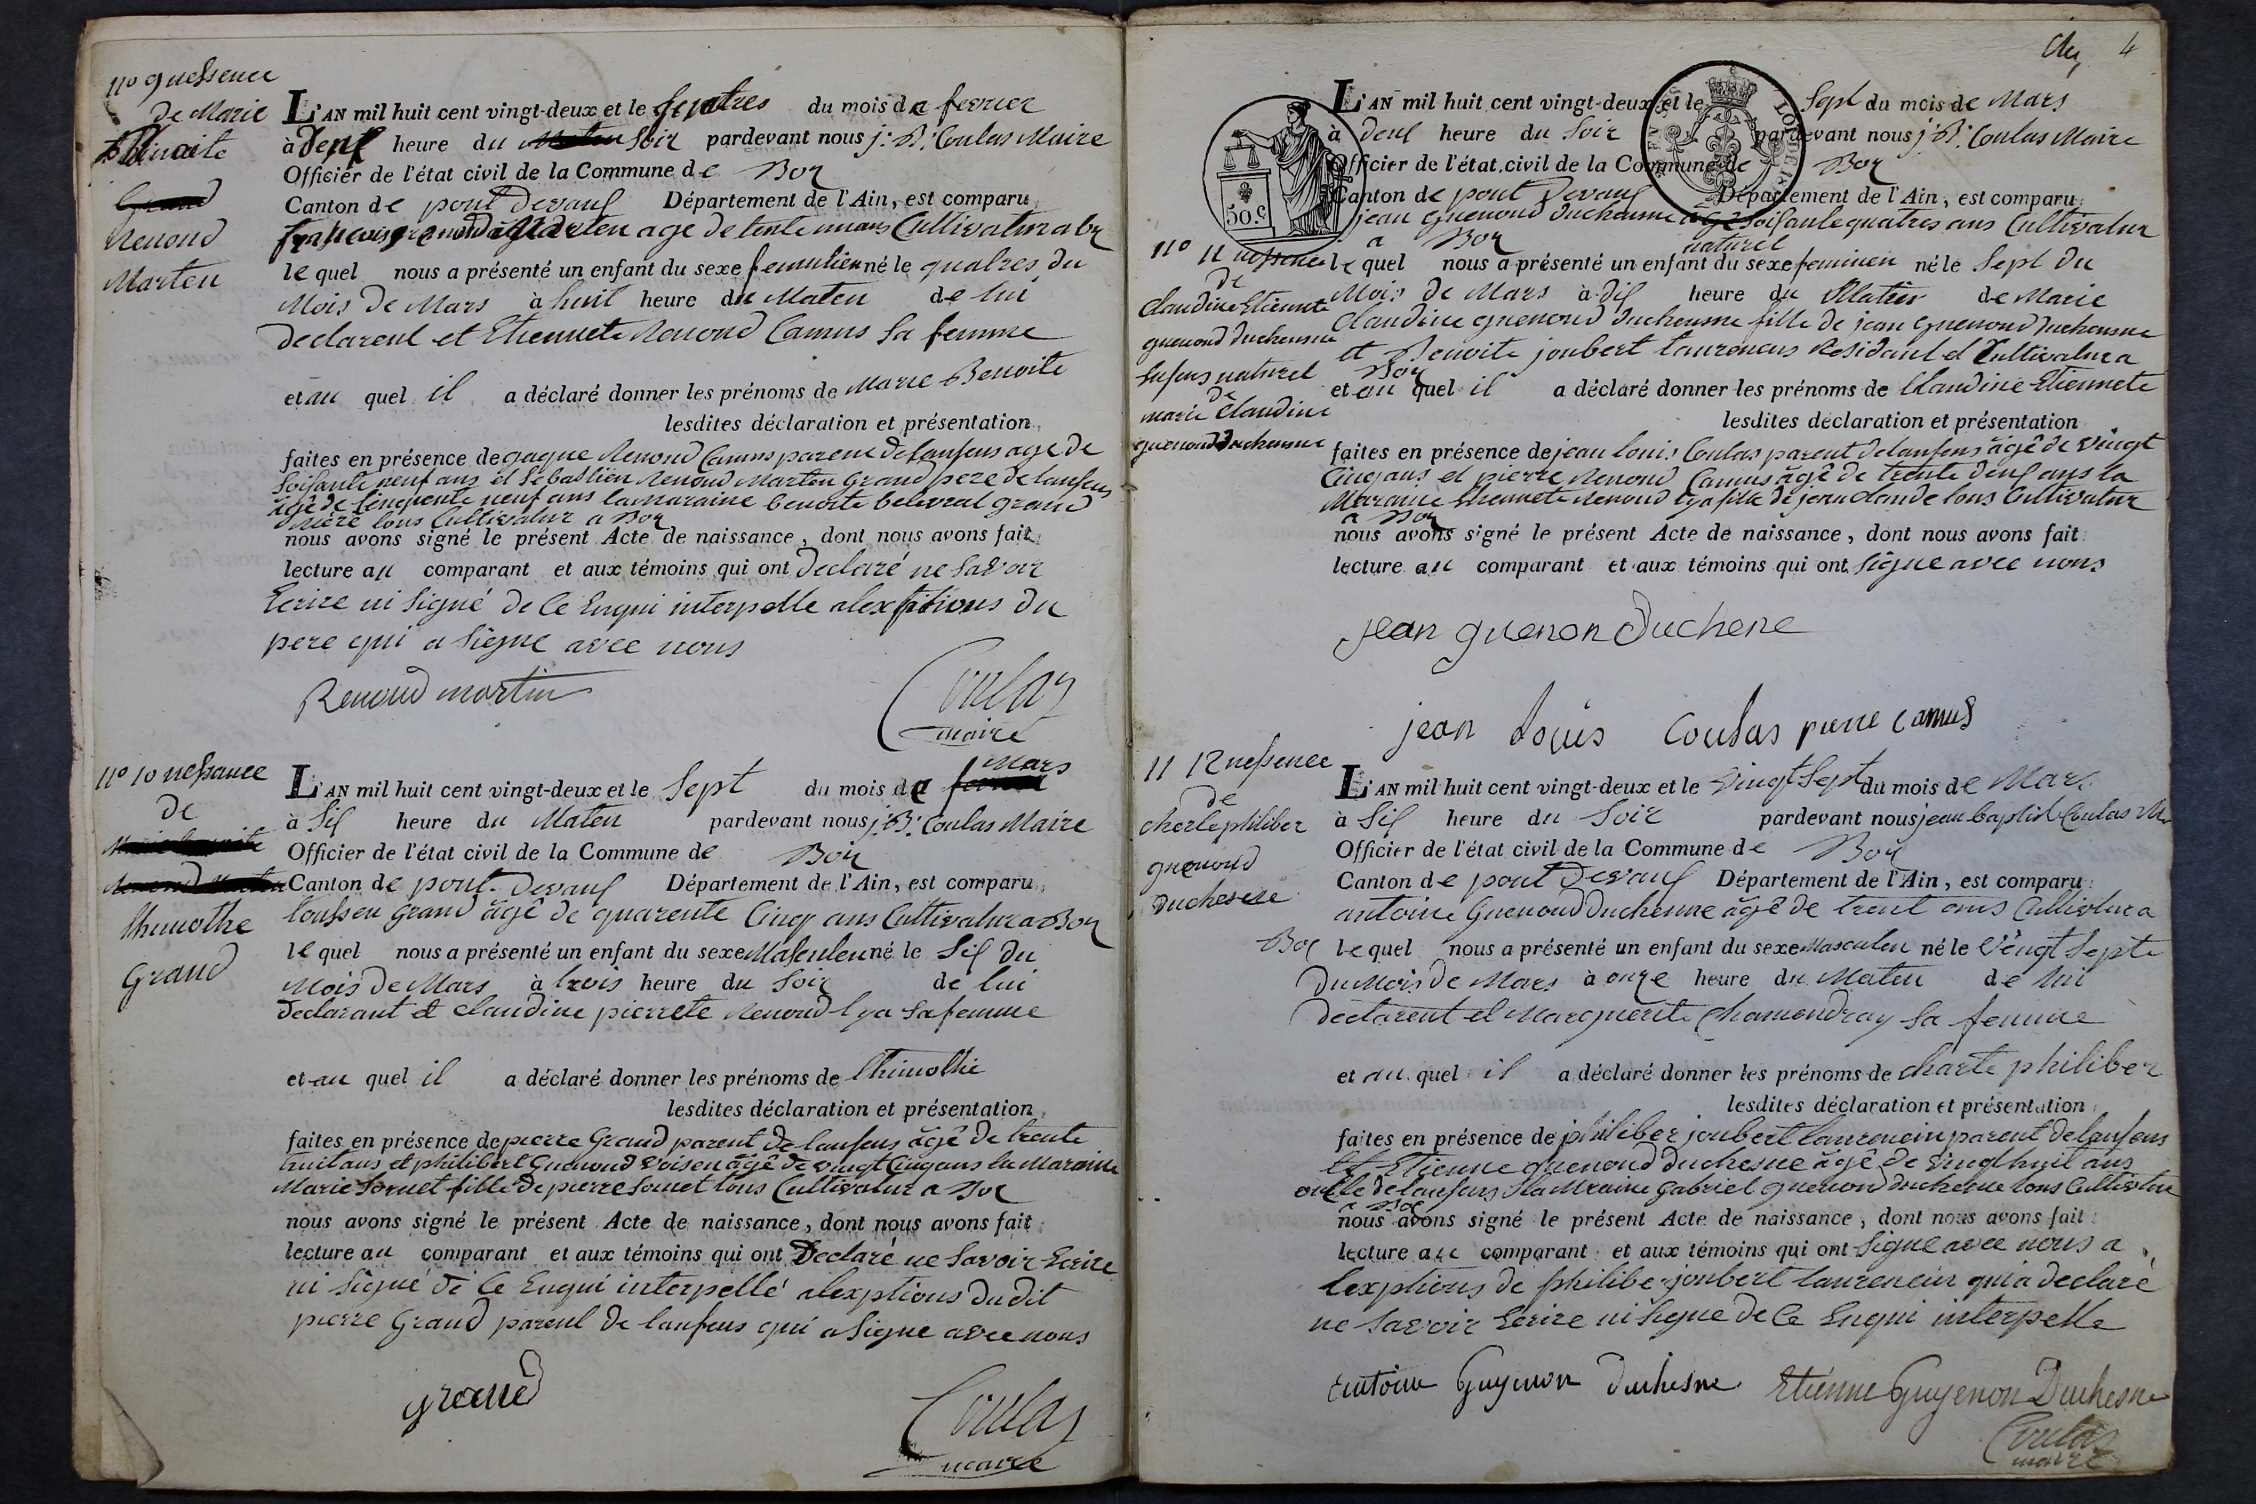 no 9 nessence
de Marie
Benoite
Renoud
Marten
L'AN mil huit cent vingt-deux et le quatres du mois de fevrier
à deux heure du soir pardevant nous j. B. Coulas Maire
Officier de l'état civil de la Commune de Boz
Canton de pont Devaux Département de l'Ain, est comparu
francois Renoud Marten age de trente un ans Cultivateur a boz
le quel nous a présenté un enfant du sexe femenien né le quatres du
Mois de Mars à huit heure du Maten de lui
declarent et Etiennete Renoud Camus sa femme
et au quel il a déclaré donner les prénoms de Marie Benoite
lesdites déclaration et présentation
faites en présence de Renoud Camus parent de lanfens age de
soisante neuf ans et Sebastien Renoud Marten Grand pere de lanfens
âgé de Cinquente neuf ans la maraine benoite grand
mere tous Cultivatur a Boz
nous avons signé le présent Acte de naissance, dont nous avons fait
lecture au comparant et aux témoins qui ont declaré ne savoir
Ecrire ni signé de Ce Enqui interpelle a lexptions du
pere qui a signe avec nous
Renoud martin
Coulas
maire
no 10 nessance
de
thimothe
Grand
L'AN mil huit cent vingt-deux et le Sept du mois de Mars
à Six heure du Maten pardevant nous j. B. Coulas Maire
Officier de l'état civil de la Commune de Boz
Canton de pont Devaux Département de l'Ain, est comparu
toussen Grand âgê de quarente Cinq ans Cultivatur a Boz
le quel nous a présenté un enfant du sexe Masculen né le Six du
Mois de Mars à trois heure du Soir de lui
declarant et claudine pierrete Renoud lya sa femme
et au quel il a déclaré donner les prénoms de thimothe
lesdites déclaration et présentation
faites en présence de pierre Grand parent de lanfens âgê de trente
huit ans et philibert Guenoud voisen âgê de vingt Cinq ans la Maraine
Marie Sornet fille de pierre Sornet tous Cultivatur a Boz
nous avons signé le présent Acte de naissance, dont nous avons fait
lecture au comparant et aux témoins qui ont Declaré ne Savoir Ecrire
ni signe de Ce Enqui interpellé a lexptions dudit
pierre Grand parent de lanfens qui a Signe avec nous
grand
Coulas
maire
4
50 c.
no 11 nessence
de
Claudine Etiennete
guenoud duchesne
enfens naturel
de
marie Claudine
guenoud duchesne
L'AN mil huit cent vingt-deux et le Sept du mois de Mars
à deux heure du Soir pardevant nous j. B. Coulas Maire
Officier de l'état civil de la Commune de Boz
Canton de pont Devaux Département de l'Ain, est comparu
jean Guenoud duchesne âgé soisante quatres ans Cultivatur
a Boz naturel
le quel nous a présenté un enfant du sexe feminen né le Sept du
Mois de Mars à dix heure du Maten de Marie
Claudine guenoud duchesne fille de jean Guenoud duchesne
et Benoite joubert laurencens Residant et Cultivatur a
Boz
et au quel il a déclaré donner les prénoms de Claudine Etiennete
lesdites déclaration et présentation
faites en présence de jean louis Coulas parent de lanfens âgê de vingt
Cinq ans et pierre Renoud Camus âgê de trente deux ans la
Maraine Etiennete Renoud lya fille de jean claude tous Cultivatur
a Boz
nous avons signé le présent Acte de naissance, dont nous avons fait
lecture au comparant et aux témoins qui ont signe avec nous
jean guenon Duchene
jean Louis Coulas pierre camus
11 12 nessence
de
charle philiber
guenoud
duchesne
L'AN mil huit cent vingt-deux et le vingt Sept du mois de Mars
à Six heure du Soir pardevant nous jean baptist Coulas
Officier de l'état civil de la Commune de Boz
Canton de pont Devaux Département de l'Ain, est comparu
antoine Guenoud Duchesne âgê de trent ans Cultivtur a
Boz le quel nous a présenté un enfant du sexe Masculen né le vingt Septe
Du Mois de Mars à onze heure du Maten de lui
declarent et Marguerite Chamondray sa femme
et au quel il a déclaré donner les prénoms de charle philiber
lesdites déclaration et présentation
faites en présence de philiber joubert laurencin parent de lanfens
et Etienne guenoud duchesne âgê de vingt huit ans
oncle de lanfens la Mraine Gabriel guenoud duchesne tous Cultivtur
a Boz
nous avons signé le présent Acte de naissance, dont nous avons fait
lecture au comparant et aux témoins qui ont signe avec nous a
lexptions de philiber joubert laurencin qui a declaré
ne Savoir Ecrire ni signe de Ce Enqui interpelle
Antoine Guyenon Duchesne Etienne Guyenon Duchesne
Coulas
maire